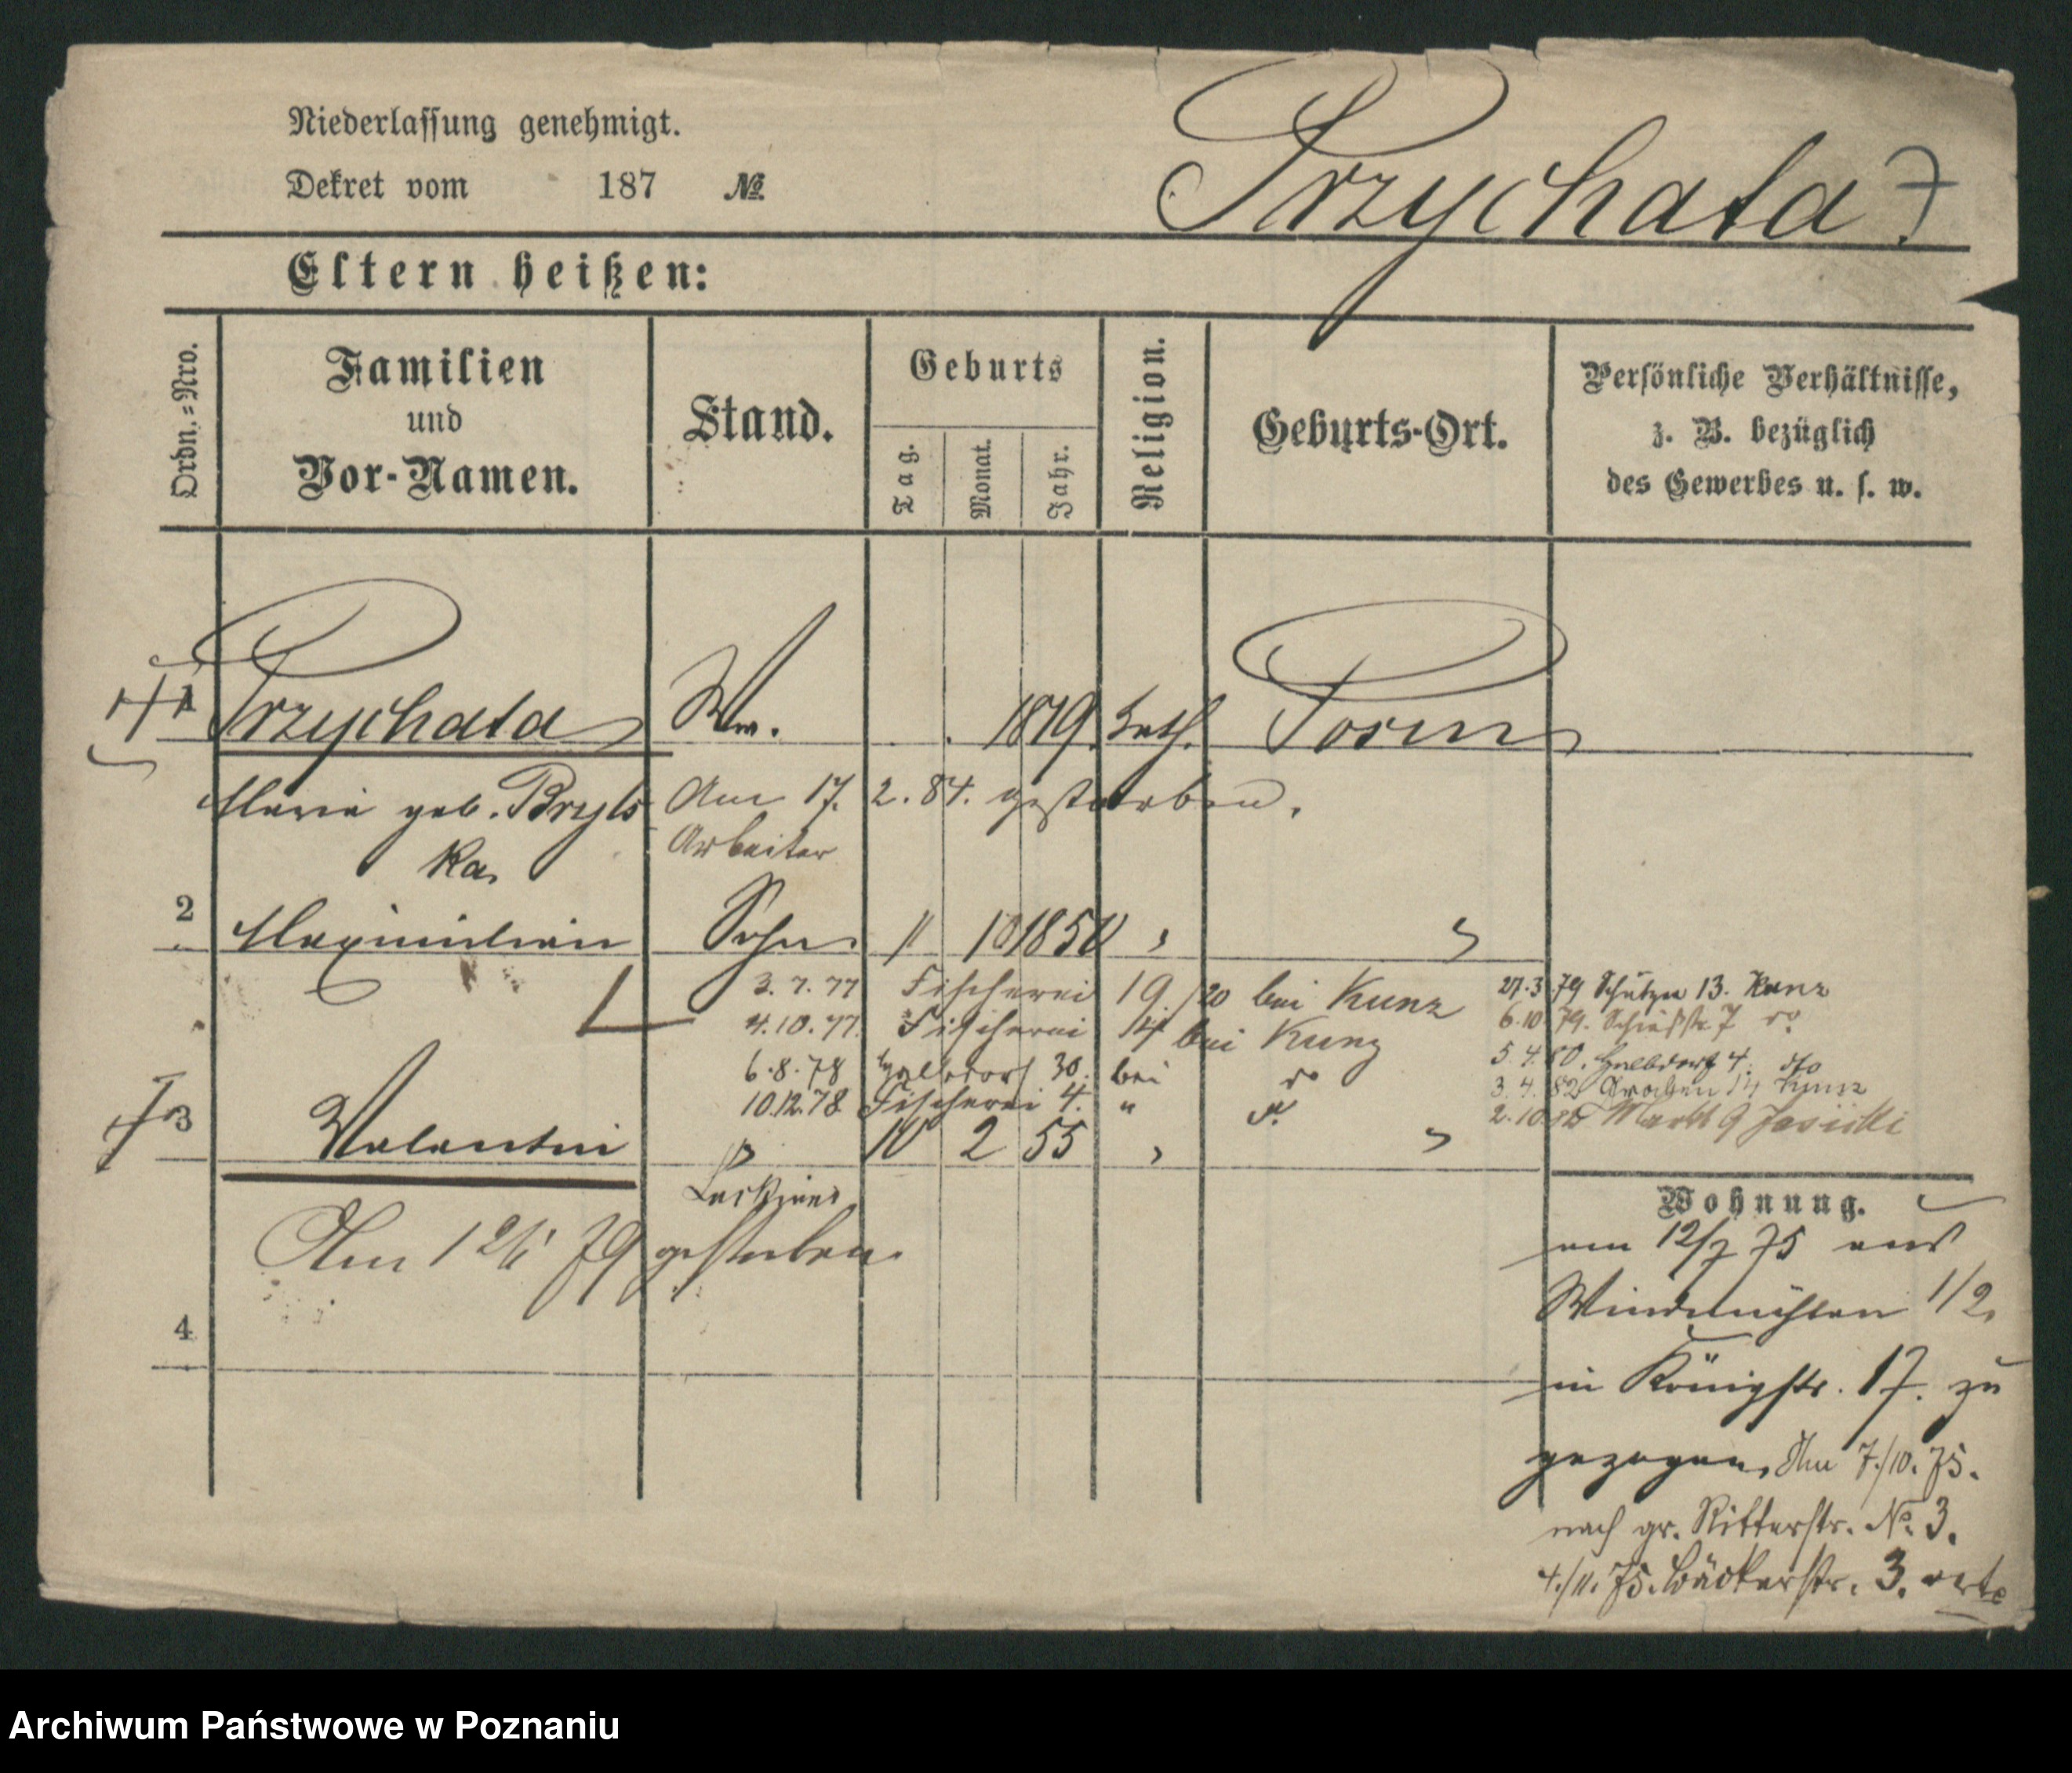 Niederlassung genehmigt.
Dekret vom 187 No.
Przychata 7
Eltern heißen:
Ordn.=Nro.
Familien
und
Vor-Namen.
Stand.
Geburts
Tag.
Monat.
Jahr.
Religion.
Geburts-Ort.
Persönliche Verhältnisse,
z. B. bezüglich
des Gewerbes u. s. w.
1 Przychata Ww. 1819. kath. Posen
Maria geb. Bryls Am 17. 2. 84. gestorben.
ka Arbeiter
2 Maximilian Sohn 11 10 1850 "
3. 7. 77 Fischerei 19/20 bei Kunz
4. 10. 77. Fischerei 14 bei Kunz
6. 8. 78 Halbdorf 30. bei do
10.12.78 Fischerei 4. " do
27.3.79 Schützn 13. Kunz
6.10.79. Schießstr. 7 do
5.4.80. Halbdorf 4. dto
3.4.82 Graben 14 Kunz
2.10.82 Markt 9
3 Valentin " 10 2 55 "
Am 12/1 79 gestorben.
4
Wohnung.
am 12/7 75 aus
Windmühlen 1/2.
in Königstr. 17. zu
gezogen. Am 7./10. 75.
nach gr. Ritterstr. No. 3.
4./11. 75. Bäckerstr. 3.
Archiwum Państwowe w Poznaniu